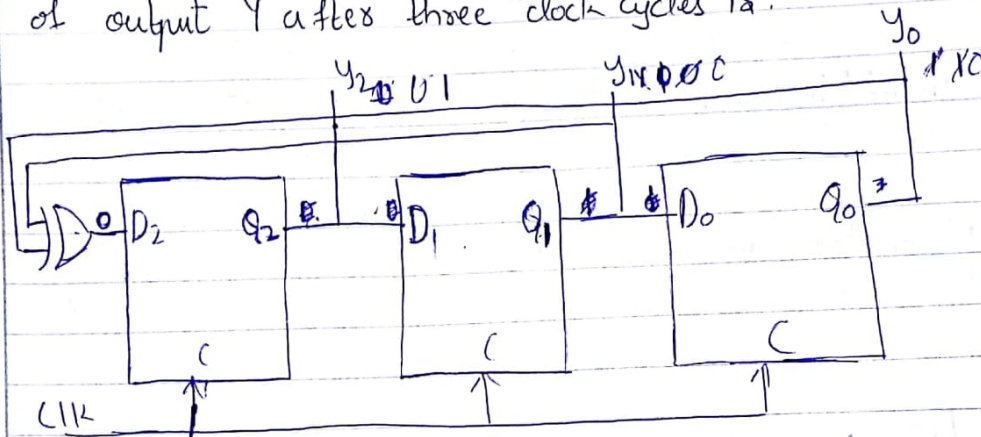 of output Y after three clock cycles is.
Y0
Y2 0 1
Y1
D2 Q2 D1 Q1 D0 Q0
C C C
Clk